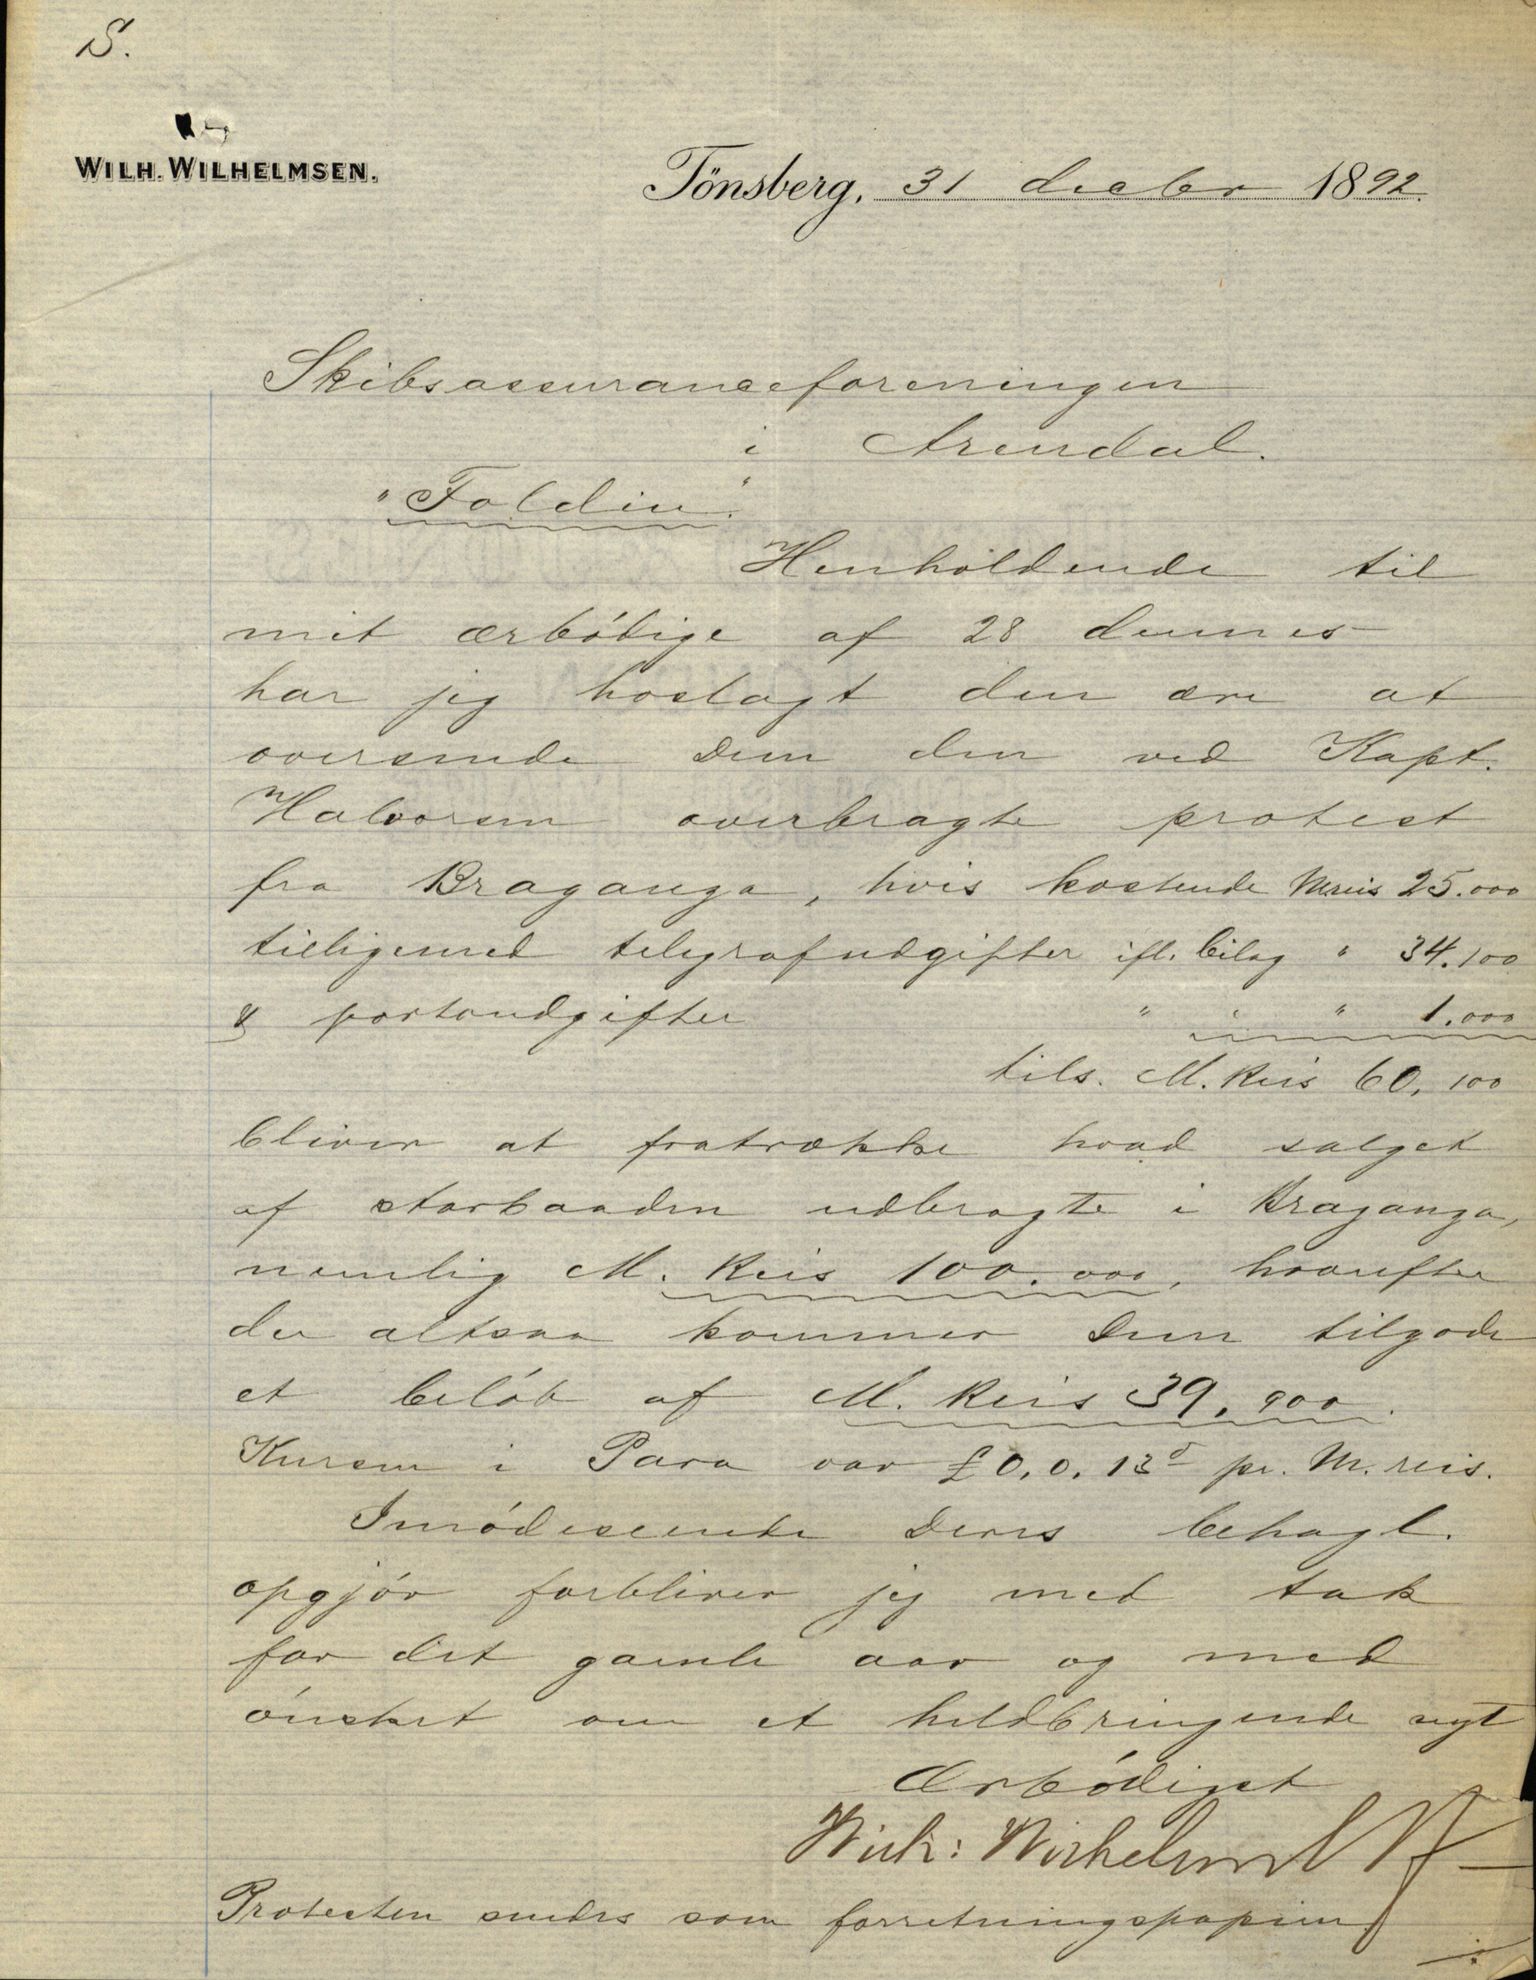 S.
WILH. WILHELMSEN.
Tönsberg, 31 decbr 1892.
Skibsassuranceforeningen
i Arendal.
"Foldin".
Henholdende til
mit ærbódige af 28 dennes
har jeg hoslagt den ære at
oversende Dem den ved Kapt.
Halvorsen overbragte protest
fra Braganga, hvis kostende Mreis 25.000
tilligemed telegrafudgifter ifl. bilag " 34.100
& portoudgifter " " " 1.000
tils. M. Reis 60,100
bliver at fratrække hvad salget
af storbaaden udbragte i Braganga,
nemlig M. Reis 100.000, hvorefter
der altsaa kommer Dem tilgode
et belób af M. Reis 39,900.
Kursen i Para var £0.0.13d pr. M. reis.
Imódeseende Deres behagl.
opgjór forbliver jeg med tak
for det gamle aar og med
ónsket om et heldbringende nyt
Ærbódigst
Wilh: Wilhelmsen
Protesten sendes som forretningspapirer